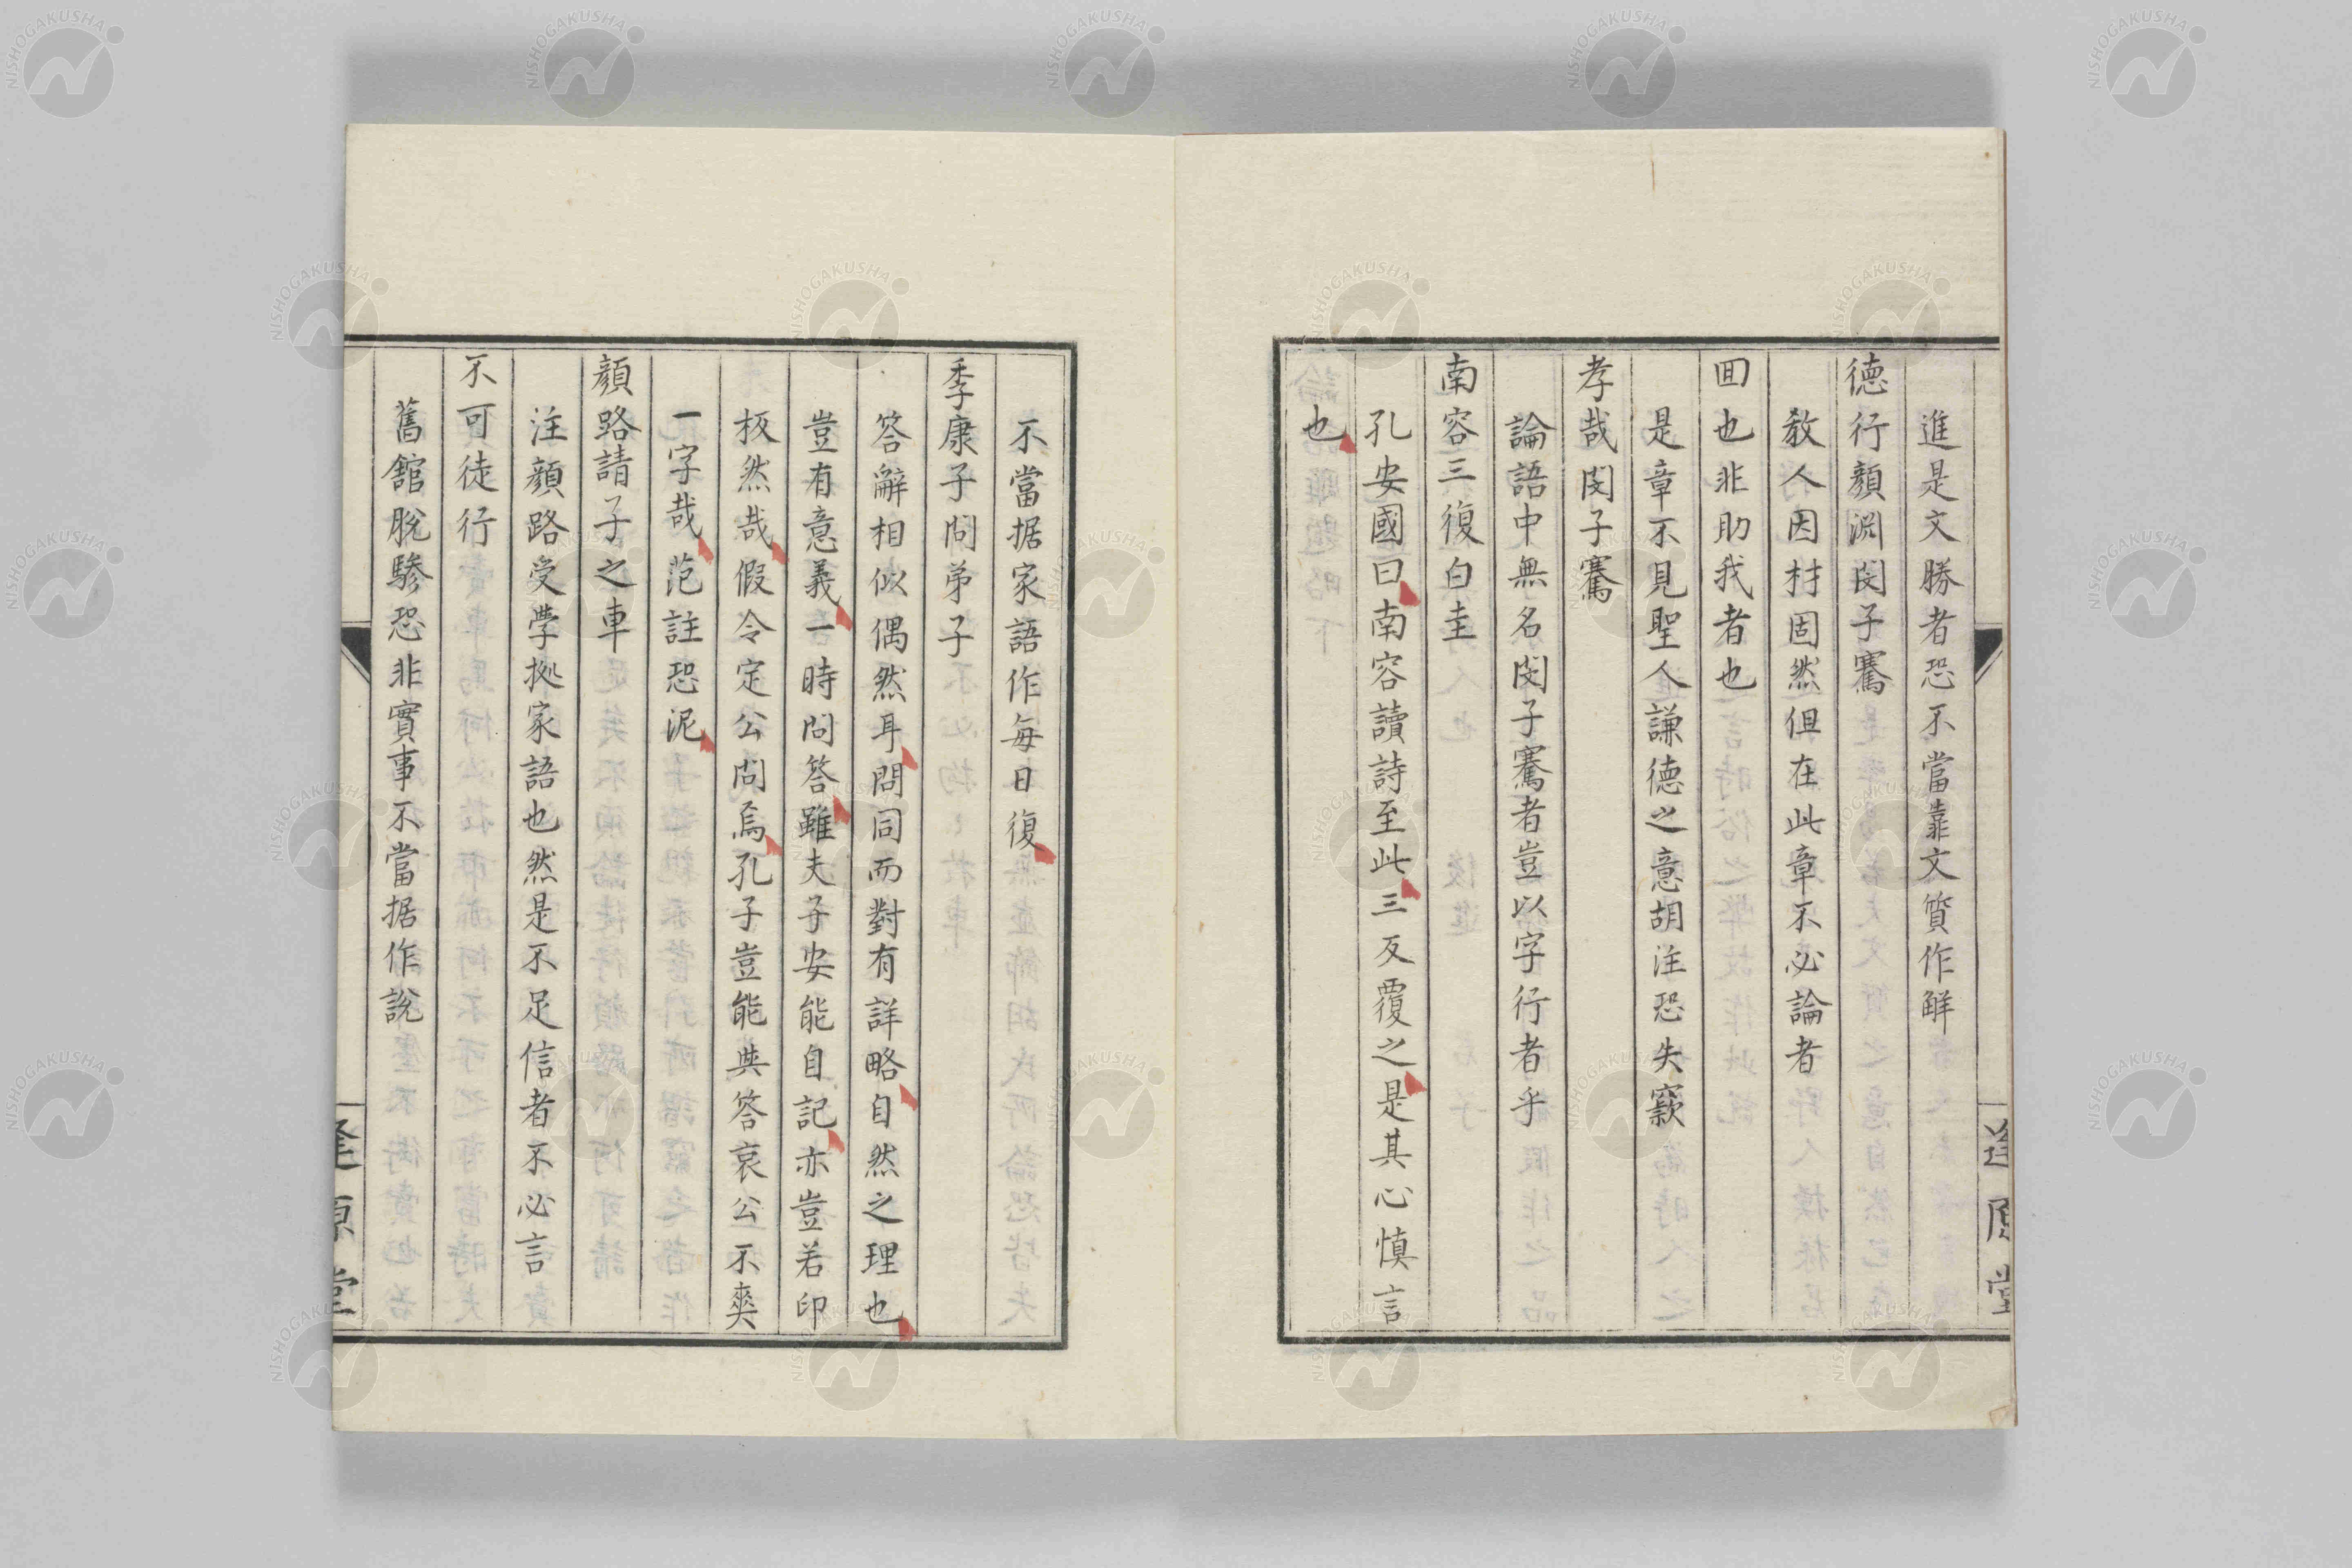 進是文勝者恐不當靠文質作解
德行顏淵閔子騫
教人因材固然但在此章不必論者
回也非助我者也
是章不見聖人謙德之意胡注恐失窾
孝哉閔子騫
論語中無名閔子騫者豈以字行者乎
南容三復白圭
孔安國曰南容讀詩至此三反覆之是其心慎言
也
逢原堂
不當据家語作每日復
季康子問弟子
答辭相似偶然耳問同而對有詳略自然之理也
豈有意義一時問答雖夫子安能自記亦豈若印
板然哉假令定公問焉孔子豈能與答哀公不爽
一字哉范註恐泥
顏路請子之車
注顏路受學拠家語也然是不足信者不必言
不可徒行
舊館脫驂恐非實事不當据作說
逢原堂
NISHOGAKUSHA